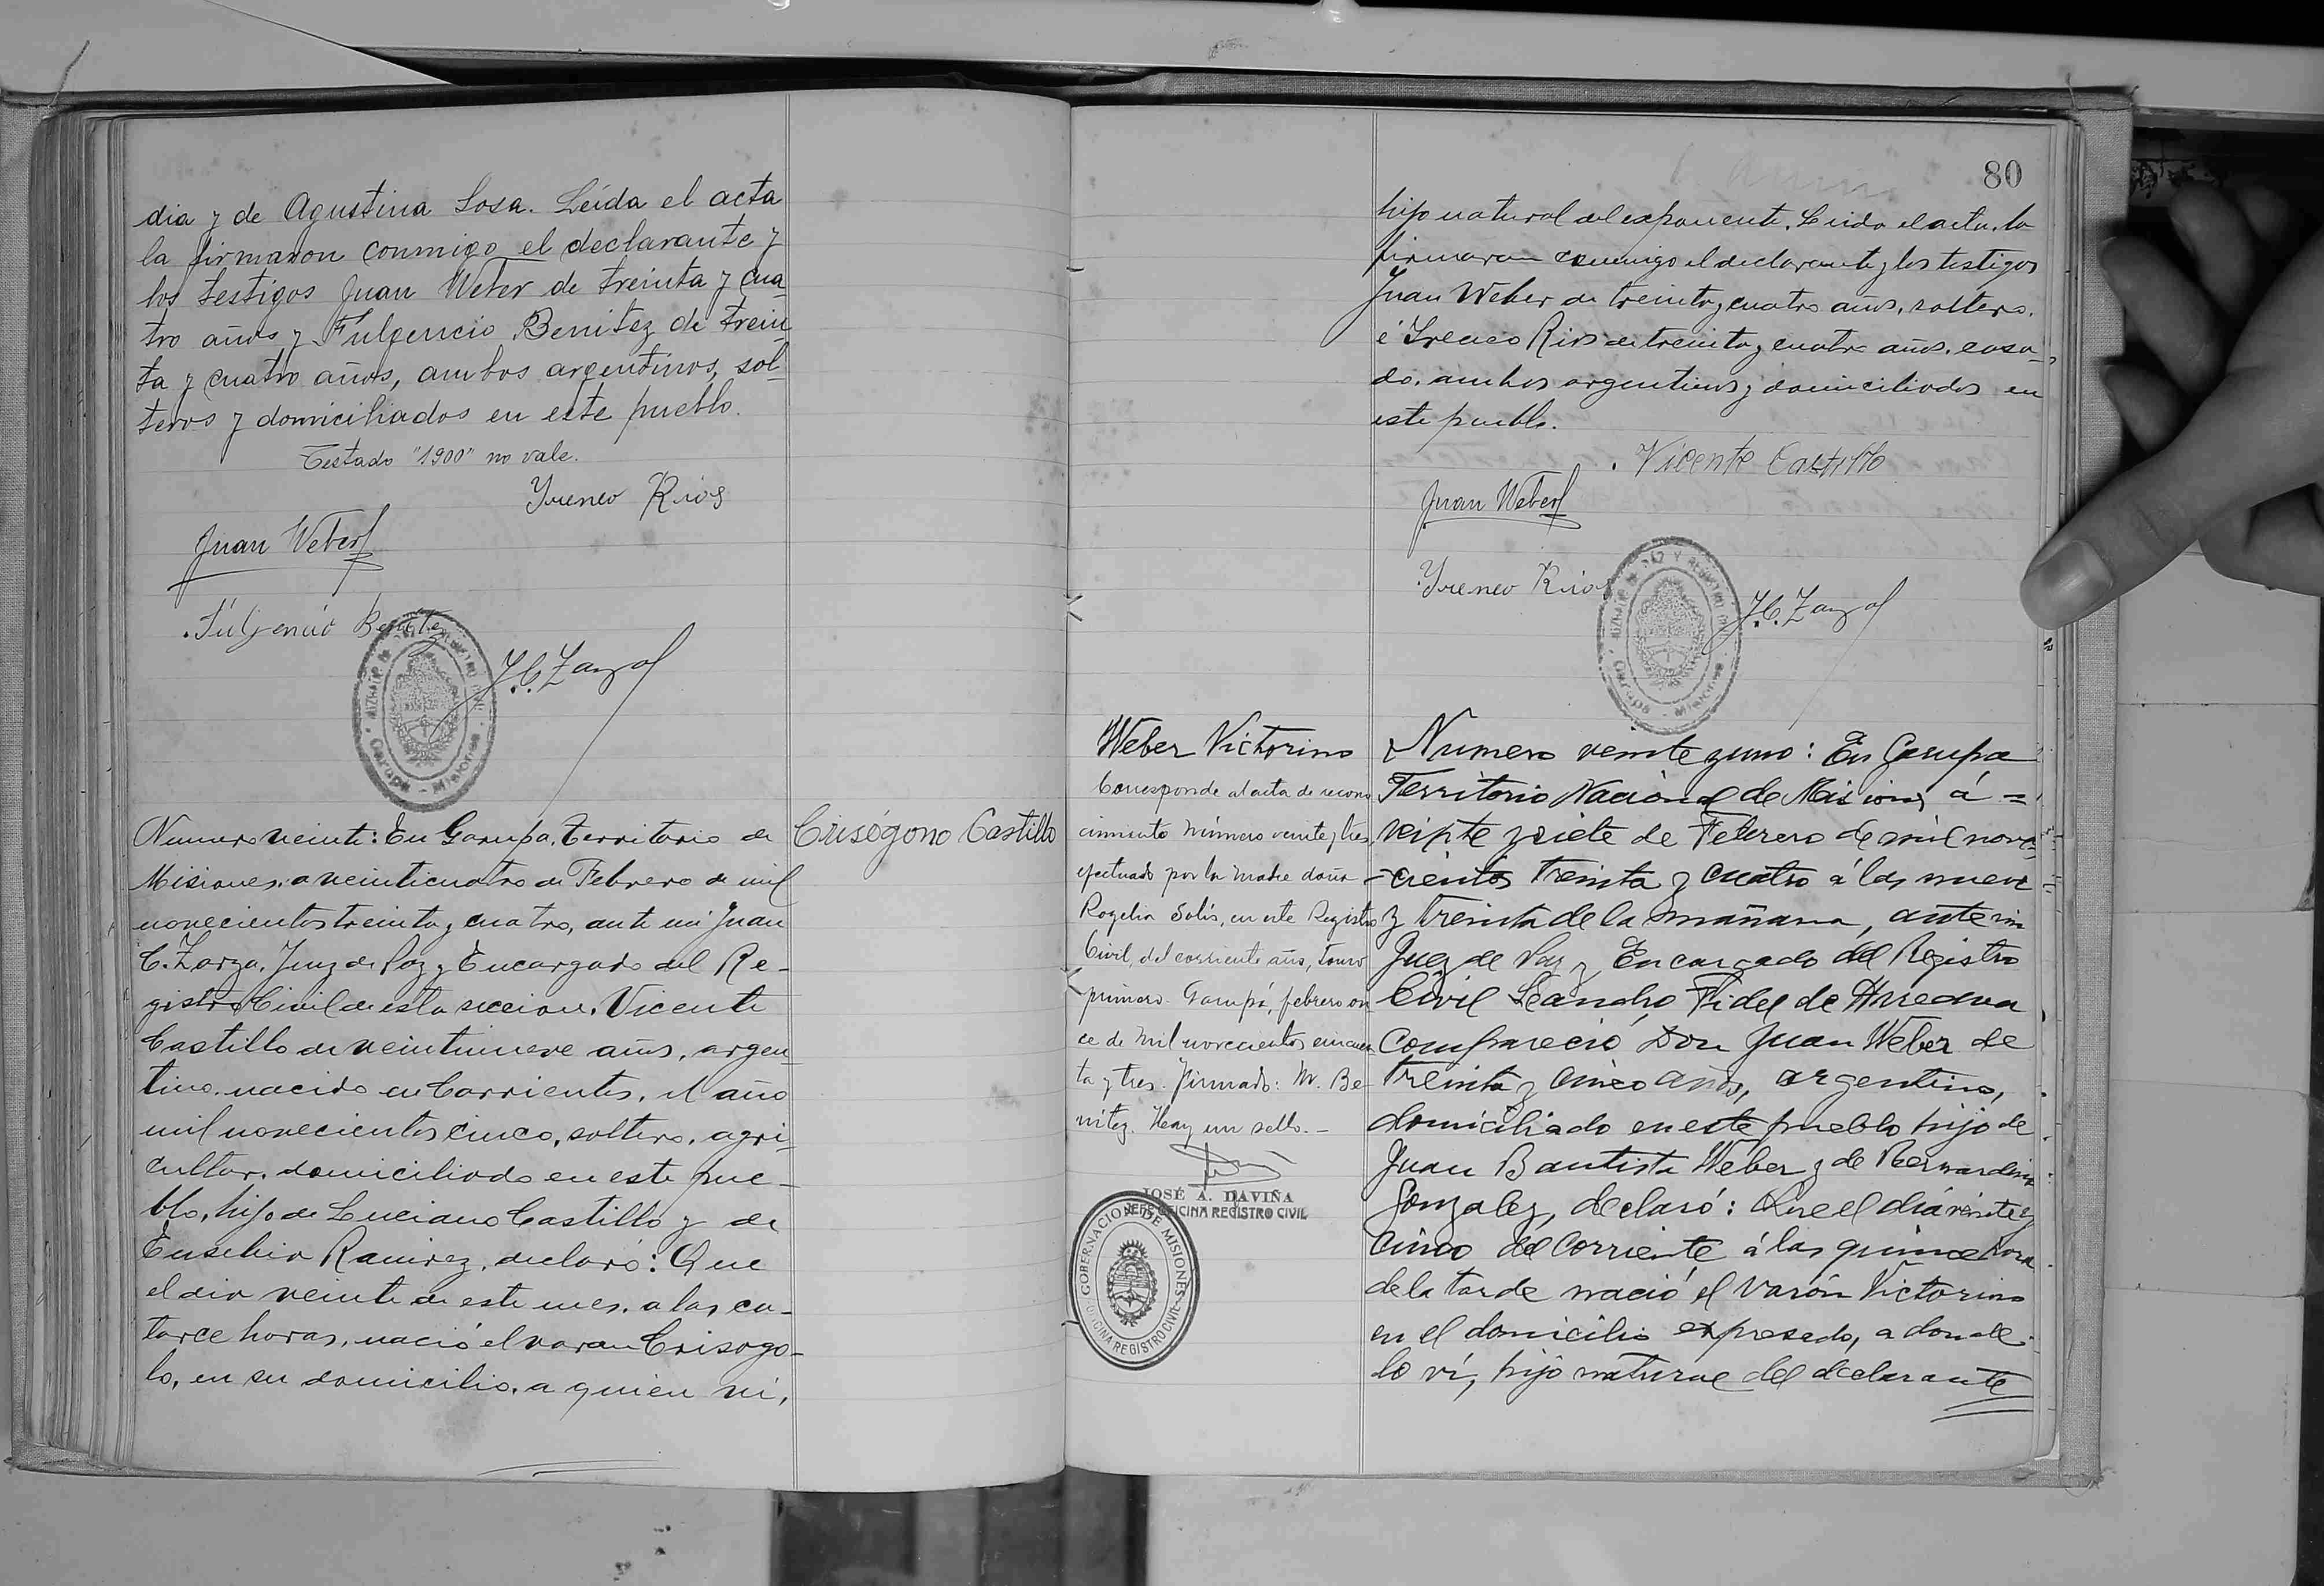 dia y de Agustina Sosa. Leída el acta
la firmaron conmigo el declarante y
los testigos Juan Weber de treinta y cua
tro años y Fulgencio Benitez de trein
ta y cuatro años, ambos argentinos, sol
teros y domiciliados en este pueblo.
Testado "1900" no vale.
Yreneo Rios
Juan Weber
Fulgencio Benitez
J.C. Zarza
Numero veinte: En Garupa, Territorio de
Misiones, a veinticuatro de Febrero de mil
novecientos treinta y cuatro, ante mi Juan
C. Zarza, Juez de Paz y Encargado del Re-
gistro Civil de esta seccion, Vicente
Castillo de veintinueve años, argen
tino, nacido en Corrientes, el año
mil novecientos cinco, soltero, agri-
cultor, domiciliado en este pue-
blo, hijo de Luciano Castillo y de
Eusebia Ramirez, declaró: Que
el dia veinte de este mes, a las ca-
torce horas, nació el varon Crisogo-
lo, en su domicilio, a quien vi,
Criségono Castillo
80
hijo natural del exponente. Leida el acta, la
firmaron conmigo el declarante y los testigos
Juan Weber de treinta y cuatro años, soltero,
é Ireneo Rios de treinta y cuatro años, casa-
do, ambos argentinos y domiciliados en
este pueblo.
Vicente Castillo
Juan Weber
Yreneo Rios
J.C. Zarza
Weber Victorino
Corresponde al acta de recono
cimiento número veinte y tres,
efectuado por la madre doña
Rogelia Solís, en este Registro
Civil, del corriente año, tomo
primero. Garupá, febrero on
ce de mil novecientos cincuen
ta y tres. Firmado: M. Be-
nitez. Hay un sello.-
JOSÉ A. DAVIÑA
JEFE OFICINA REGISTRO CIVIL
GOBERNACION DE MISIONES
OFICINA REGISTRO CIVIL
Numero veinte y uno: En Garupa
Territorio Nacional de Misiones á =
veinte y siete de Febrero de mil nove=
=cientos treinta y cuatro á las nueve =
y treinta de la mañana, ante mi
Juez de Paz y Encargado del Registro
Civil Leandro Fidel de
Compareció Don Juan Weber de
treinta y cinco años, argentino,
domiciliado en este pueblo hijo de
Juan Bautista Weber y de Bernardina
Gonzalez, declaró: Que el día veinte y
cinco del corriente á las quince hora
de la tarde nació el varón Victorino
en el domicilio expresado, a donde
lo ví, hijo natural del declarante